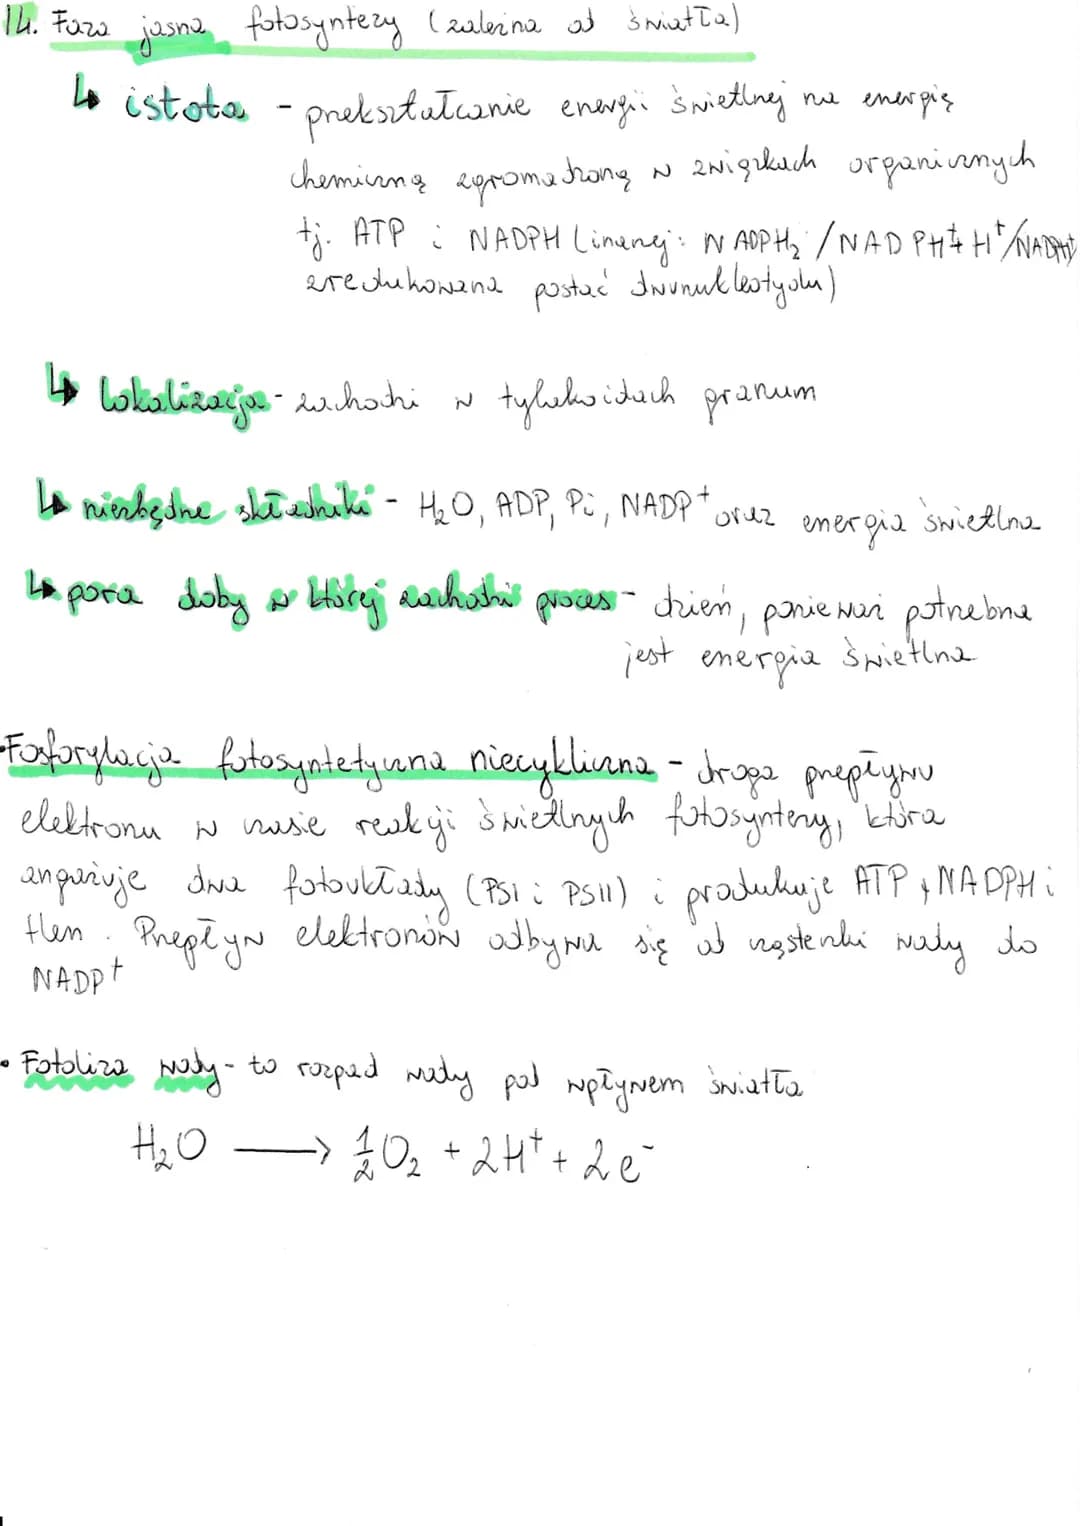 14. Faza jasna fotosyntezy (zależna od światła)
↳ istota - przekształcanie energii świetlnej na energię
chemiczną zgromadzoną w związkach organicznych
tj. ATP i NADPH (inaczej: NADPH₂ / NADPH + H⁺/
zredukowana postać dwunukleotydu)
↳ lokalizacja - zachodzi w tylakoidach granum
↳ niezbędne składniki - H₂O, ADP, Pi, NADP⁺ oraz energia świetlna
↳ pora doby w której zachodzi proces - dzień, ponieważ potrzebna
jest energia świetlna
•Fosforylacja fotosyntetyczna niecykliczna - droga przepływu
elektronu w czasie reakcji świetlnych fotosyntezy, która
angażuje dwa fotoukłady (PSI i PSII) i produkuje ATP, NADPH i
tlen. Przepływ elektronów odbywa się od cząsteczki wody do
NADP⁺
• Fotoliza wody - to rozpad wody pod wpływem światła
H₂O ⟶ ½O₂ + 2H⁺ + 2e⁻